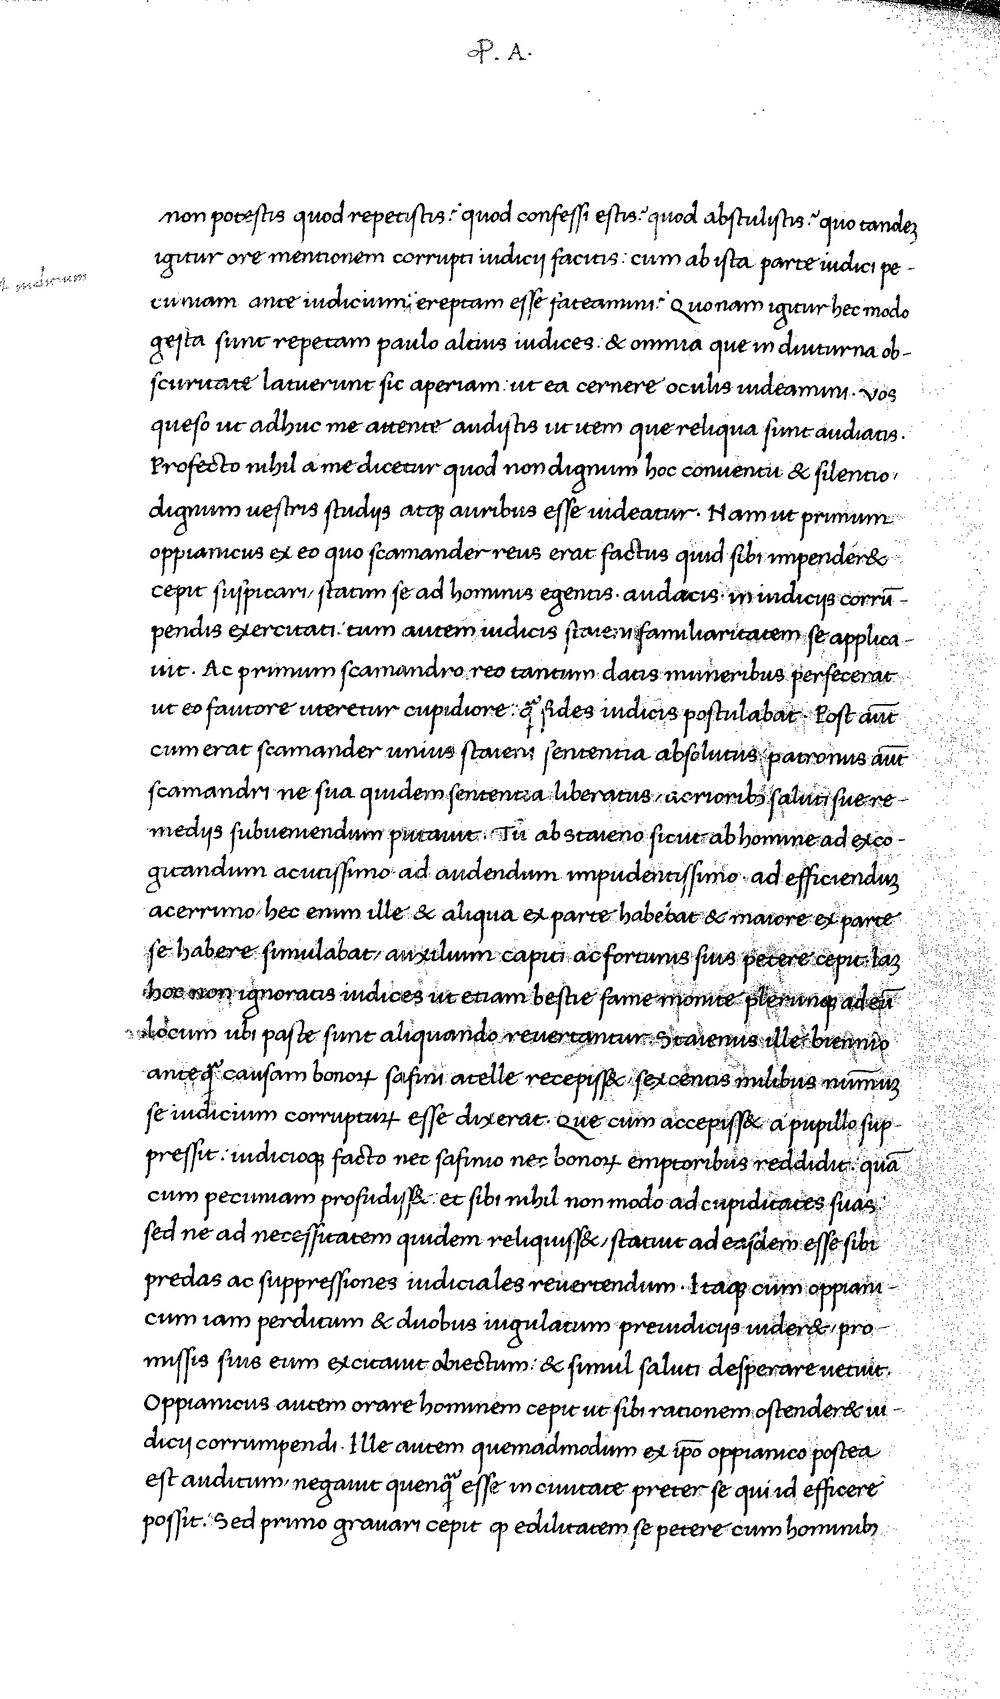 P. A.
non potestis quod repetistis? quod confessi estis? quod abstulistis? quo tandeʒ
igitur ore mentionem corrupti iudicij facitis: cum ab ista parte iudici pe-
cuniam ante iudicium, ereptam esse fateamini? Quonam igitur hec modo
gesta sunt repetam paulo altius iudices: & omnia que in diuturna ob-
scuritate latuerunt sic aperiam: ut ea cernere oculis uideamini. Vos
queso ut adhuc me attente audistis ut item que reliqua sunt audiatis.
Profecto nihil a me dicetur quod non dignum hoc conuentu & silentio,
dignum uestris studijs atqꝫ auribus esse uideatur. Nam ut primum
oppianicus ex eo quo scamander reus erat factus quid sibi impender&
cepit suspicari, statim se ad hominis egentis. audacis. in iudicijs corrū-
pendis exercitati. tum autem iudicis staieni familiaritatem se applica-
uit. Ac primum scamandro reo tantum datis muneribus perfecerat
ut eo fautore uteretur cupidiore: q̄ fides iudicis postulabat. Post aūt
cum erat scamander unius staieni sententia absolutus, patronus aūt
scamandri ne sua quidem sententia liberatus, acrioribꝫ saluti sue re-
medijs subueniendum putauit. Tū ab staieno sicut ab homine ad exco-
gitandum acutissimo. ad audendum impudentissimo. ad efficienduʒ
acerrimo, hec enim ille & aliqua ex parte habebat & maiore ex parte
se habere simulabat, auxilium capiti ac fortunis suis petere cepit. Iaʒ
hoc non ignoratis iudices ut etiam bestie fame monite plerunqꝫ ad eū
locum ubi paste sunt aliquando reuertantur. Staienus ille biennio
anteq̄ causam bonoꝝ safini atelle recepiss&, sexcentis milibus nūmuʒ
se iudicium corruptuꝝ esse dixerat. Que cum accepiss& a pupillo sup-
pressit: iudicioqꝫ facto nec safinio nec bonoꝝ emptoribus reddidit: quā
cum pecuniam profudiss&: et sibi nihil non modo ad cupiditates suas:
sed ne ad necessitatem quidem reliquiss&, statuit ad easdem esse sibi
predas ac suppressiones iudiciales reuertendum. Itaqꝫ cum oppiani-
cum iam perditum & duobus iugulatum preiudicijs uider&, pro-
missis suis eum excitauit obiectum: & simul saluti desperare uetuit.
Oppianicus autem orare hominem cepit ut sibi rationem ostender& iu-
dicij corrumpendi. Ille autem quemadmodum ex ip̄o oppianico postea
est auditum, negauit quenq̄ esse in ciuitate preter se qui id efficere
possit. Sed primo grauari cepit ꝙ edilitatem se petere cum hominibꝫ